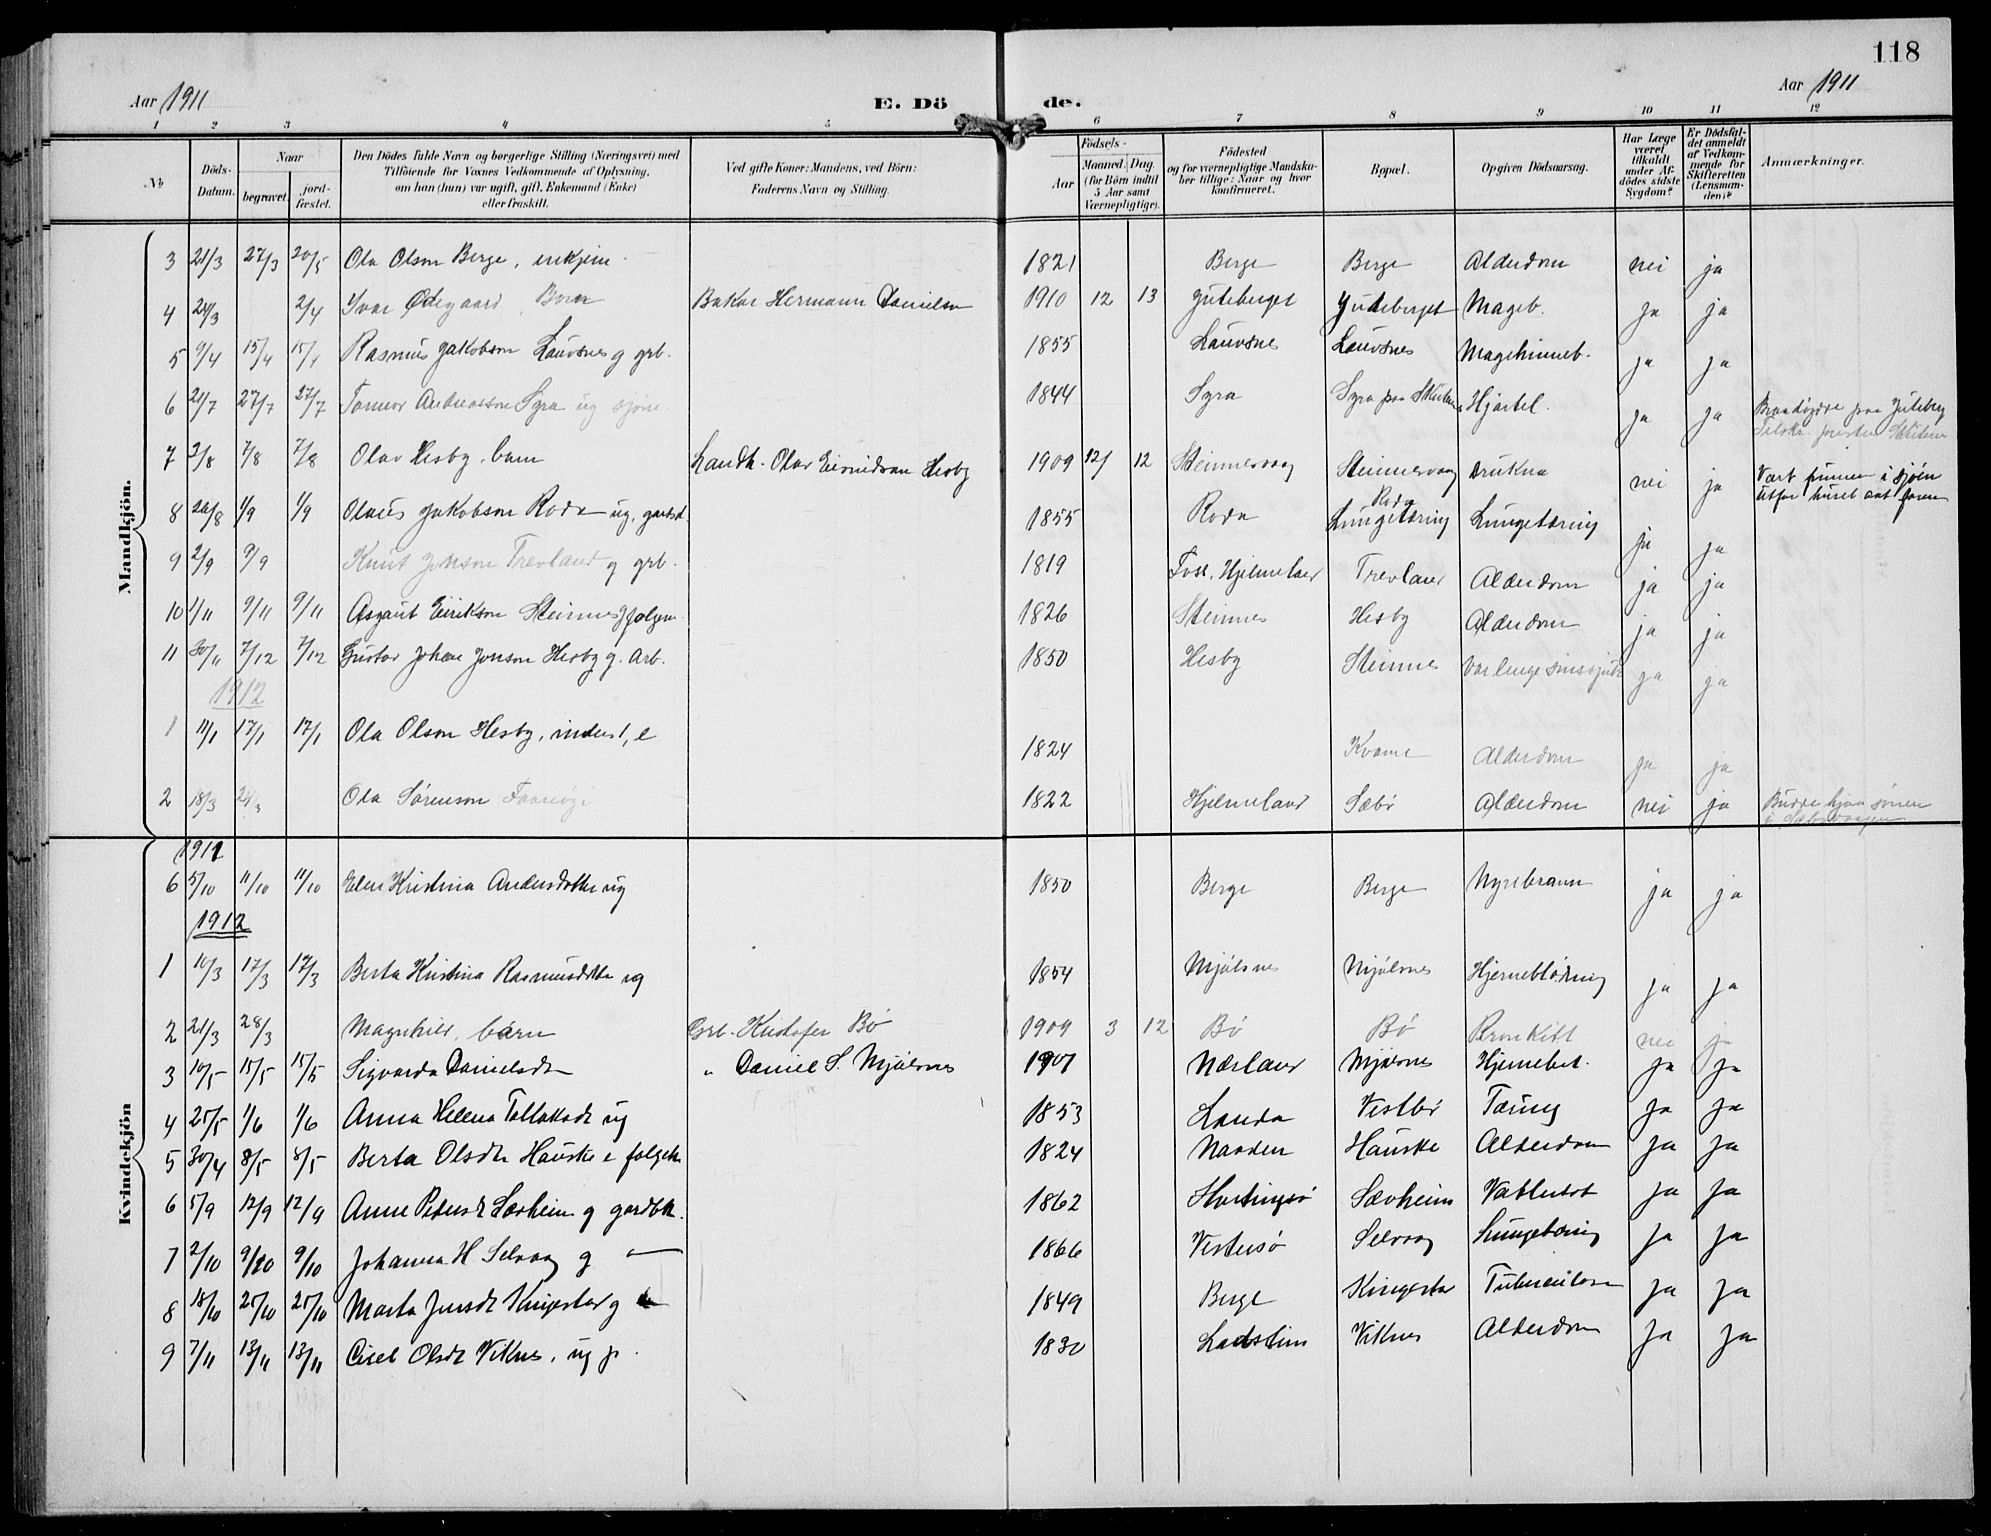 118
Aar 1911
E. Döde.
Aar 1911
1 2 3 4 5 6 7 8 9 10 11 12
No
Döds-Datum.
Naar
begravet.
jord-fæstet.
Den Dödes fulde Navn og borgerlige Stilling (Næringsvei) med
Tilföiende for Voxnes Vedkommende af Oplysning,
om han (hun) var ugift, gift, Enkemand (Enke)
eller fraskilt.
Ved gifte Koner: Mandens, ved Börn:
Faderens Navn og Stilling.
Födsels-
Aar
Maaned. Dag.
(for Börn indtil
5 Aar samt
Værnepligtige).
Födested
og for værnepligtige Mandska-
ber tillige: Naar og hvor
konfirmeret.
Bopæl.
Opgiven Dödsaarsag.
Har Læge
været
tilkaldt
under Af-
dödes sidste
Sygdom?
Er Dödsfal-
det anmeldt
af Vedkom-
mende for
Skifteretten
(Lensman-
den)?
Anmærkninger.
Mandkjön.
3 21/3 27/3 20/5 Ola Olson Berge, enkjem 1821 Berge Berge Alderdom nei ja
4 24/3 2/4 Ivar Ødegaard, Born Bakar Hermann Danielsen 1910 12 13 Juteberget Juteberget Mageb. ja ja
5 9/4 15/4 15/4 Rasmus Jakobson Lauvsnes g grb. 1855 Lauvsnes Lauvsnes Magehinneb. ja ja
6 21/7 27/7 27/7 Andreasson Syra ug sjøm 1844 Syra Syra paa Hjartel. ja ja paa Juteberg
7 2/8 7/8 7/8 Olav Hesby, barn Landh. Olav Hesby 1909 12 12 Steinnesvaag Steinnesvaag Drukna nei ja Vart funnen i sjøen
utfor huset aat faren
8 26/8 1/9 1/9 Olaus Jakobson Roda ug, 1855 Roda Roda Lungetæring Lungetæring ja ja
9 2/9 9/9 Knut Jonson Trevland g grb. 1819 Hjelmeland Trevland Alderdom ja ja
10 1/11 9/11 9/11 Asgaut Eirikson Steinnes g folgem. 1826 Steinnes Hesby Alderdom ja ja
11 30/11 7/12 7/12 Gustav Johan Jonson Hesby g. Arb. 1850 Hesby Steinnes Var lenge sinssjuk ja ja
1912
1 11/1 17/1 17/1 Ola Olson Hesby, inderst, e 1824 Kvame Alderdom ja ja
2 18/3 24/3 Ola Sørenson 1822 Hjelmeland Sæbø Alderdom nei ja Budde hjaa sonen
Kvindekjön
1911
6 5/10 11/10 11/10 Elen Kristina Andersdotter ug 1850 Berge Berge Nyrebrann ja ja
1912
1 10/3 17/3 17/3 Berta Kristina Rasmusdtr ug 1854 Mjølsnes Mjølsnes Hjernebløding ja ja
2 21/3 28/3 Magnhild, barn Grb. Kristofer Bø 1909 3 12 Bø Bø Bronkitt nei ja
3 10/5 15/5 15/5 Sigvarda Danielsdtr " Daniel S. Mjølsnes 1907 Nærland Mjølsnes Hjernebet. ja ja
4 25/5 1/6 1/6 Anna Helena Tollaksdt ug 1853 Landa Vestbø Tæring ja ja
5 30/4 8/5 8/5 Berta Olsdtr Hauske e folgek 1824 Naaden Hauske Alderdom ja ja
6 5/9 12/9 12/9 Anne Pedersdt Sævheim g gardbk. 1862 Sævheim Vattersot ja ja
7 2/10 9/10 9/10 Johanna H Selvaag g — 1866 Vestersø Selvaag Lungetæring ja ja
8 18/10 25/10 25/10 Marta Jensdt Kingestad g 1849 Berge Kingestad Tuberculose ja ja
9 7/11 13/11 13/11 Cisel Olsdt Viknes, ug p. 1830 Ladstein Viknes Alderdom ja ja